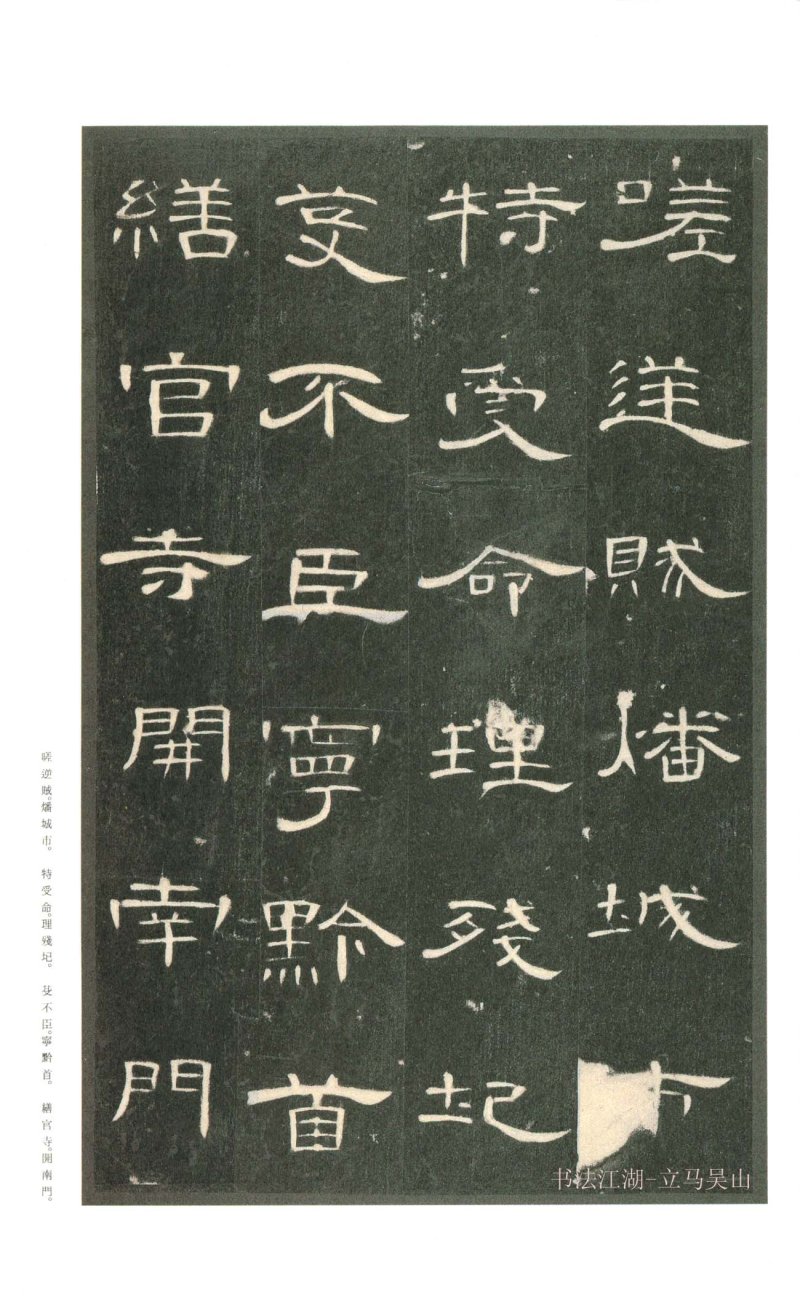 嗟逆賊燔城市
特受命理殘圮
芟不臣寧黔首
繕官寺開南門
嗟逆賊。燔城市。 特受命。理殘圮。 芟不臣。寧黔首。 繕官寺。開南門。
书法江湖-立马吴山